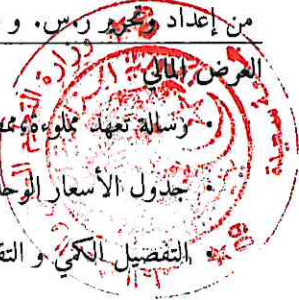 من إعداد وتحرير ر.س. و
العرض المالي
• رسالة تعهد مملوءة،
• جدول الأسعار الوحد
• التفصيل الكمي و التق